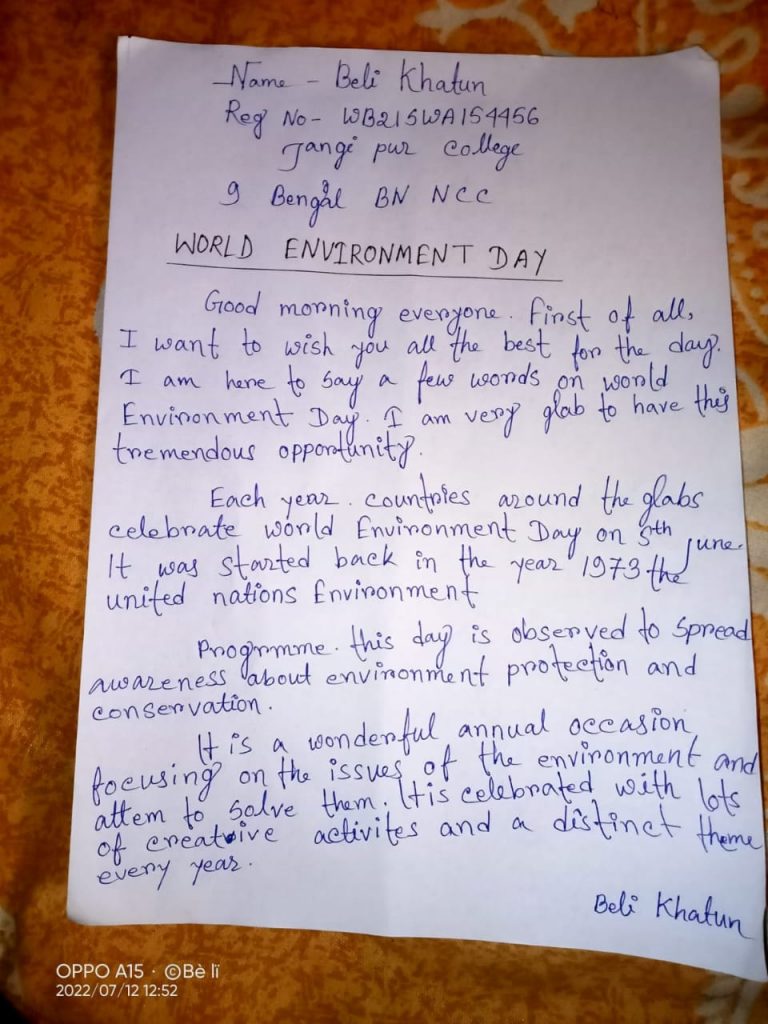 Name - Beli Khatun
Reg No - WB21SWA154456
Jangi pur College
9 Bengal BN NCC
WORLD ENVIRONMENT DAY
Good morning everyone. First of all,
I want to wish you all the best for the day.
I am here to say a few words on world
Environment Day. I am very glab to have this
tremendous opportunity.
Each year. countries around the glabs
celebrate world Environment Day on 5th june.
It was started back in the year 1973 the
united nations Environment
Progrmme. this day is observed to spread
awareness about environment protection and
conservation.
It is a wonderful annual occasion
focusing on the issues of the environment and
attem to solve them. It is celebrated with lots
of creative activites and a distinct theme
every year.
Beli Khatun
OPPO A15 · ©Bè lï
2022/07/12 12:52